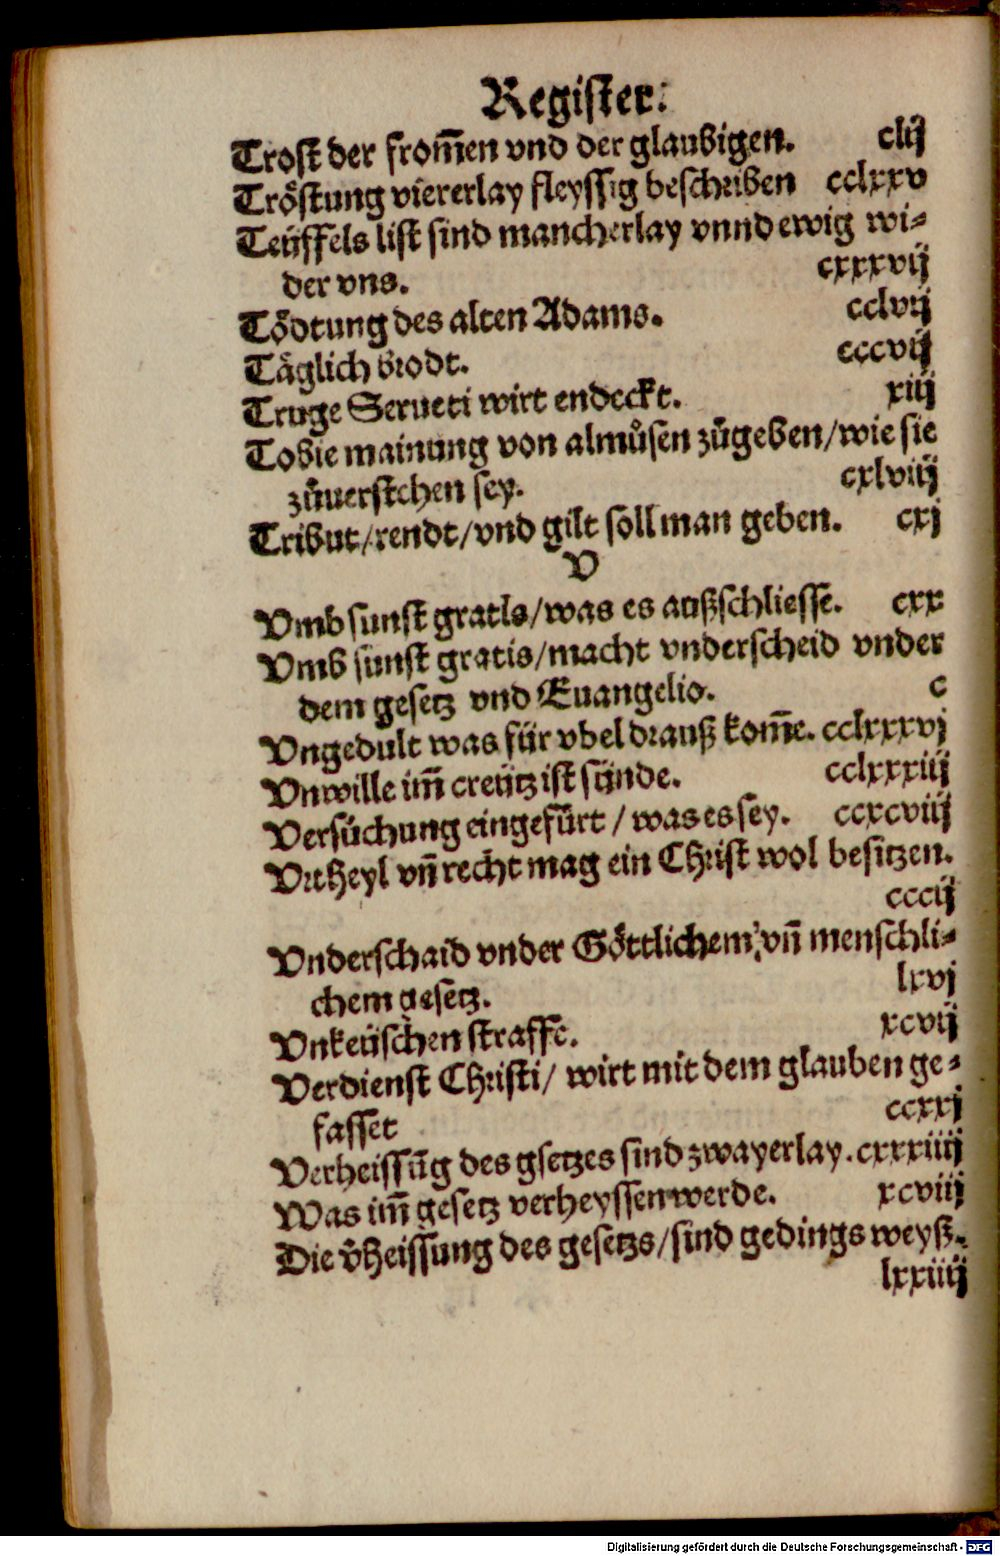 Register.
Trost der from̃en vnd der glaubigen. clij
Tröstung viererlay fleyssig beschriben cclxxv
Teüffels list sind mancherlay vnnd ewig wi-
der vns. cxxxvij
Tödtung des alten Adams. cclvij
Täglich brodt. cccvij
Truge Serueti wirt endeckt. xiij
Tobie mainung von almůsen zůgeben/wie sie
zůuerstehen sey. cxlviij
Tribut/rendt/vnd gilt soll man geben. cxj
V
Vmb sunst gratis/was es außschliesse. cxx
Vmb sunst gratis/macht vnderscheid vnder
dem gesetz vnd Euangelio. c
Vngedult was für vbel drauß kom̃e. cclxxxvj
Vnwille im̃ creütz ist sünde. cclxxxiij
Versůchung eingefürt / was es sey. ccxcviij
Vrtheyl vñ recht mag ein Christ wol besitzen.
cccij
Vnderschaid vnder Göttlichem/vñ menschli-
chem gesetz. lxvj
Vnkeüschen straffe. xcvij
Verdienst Christi/ wirt mit dem glauben ge-
fasset ccxxj
Verheissũg des gsetzes sind zwayerlay. cxxxiiij
Was im̃ gesetz verheyssen werde. xcviij
Die v̊heissung des gesetzs/sind gedings weyß.
lxxiiij
Digitalisierung gefördert durch die Deutsche Forschungsgemeinschaft - DFG